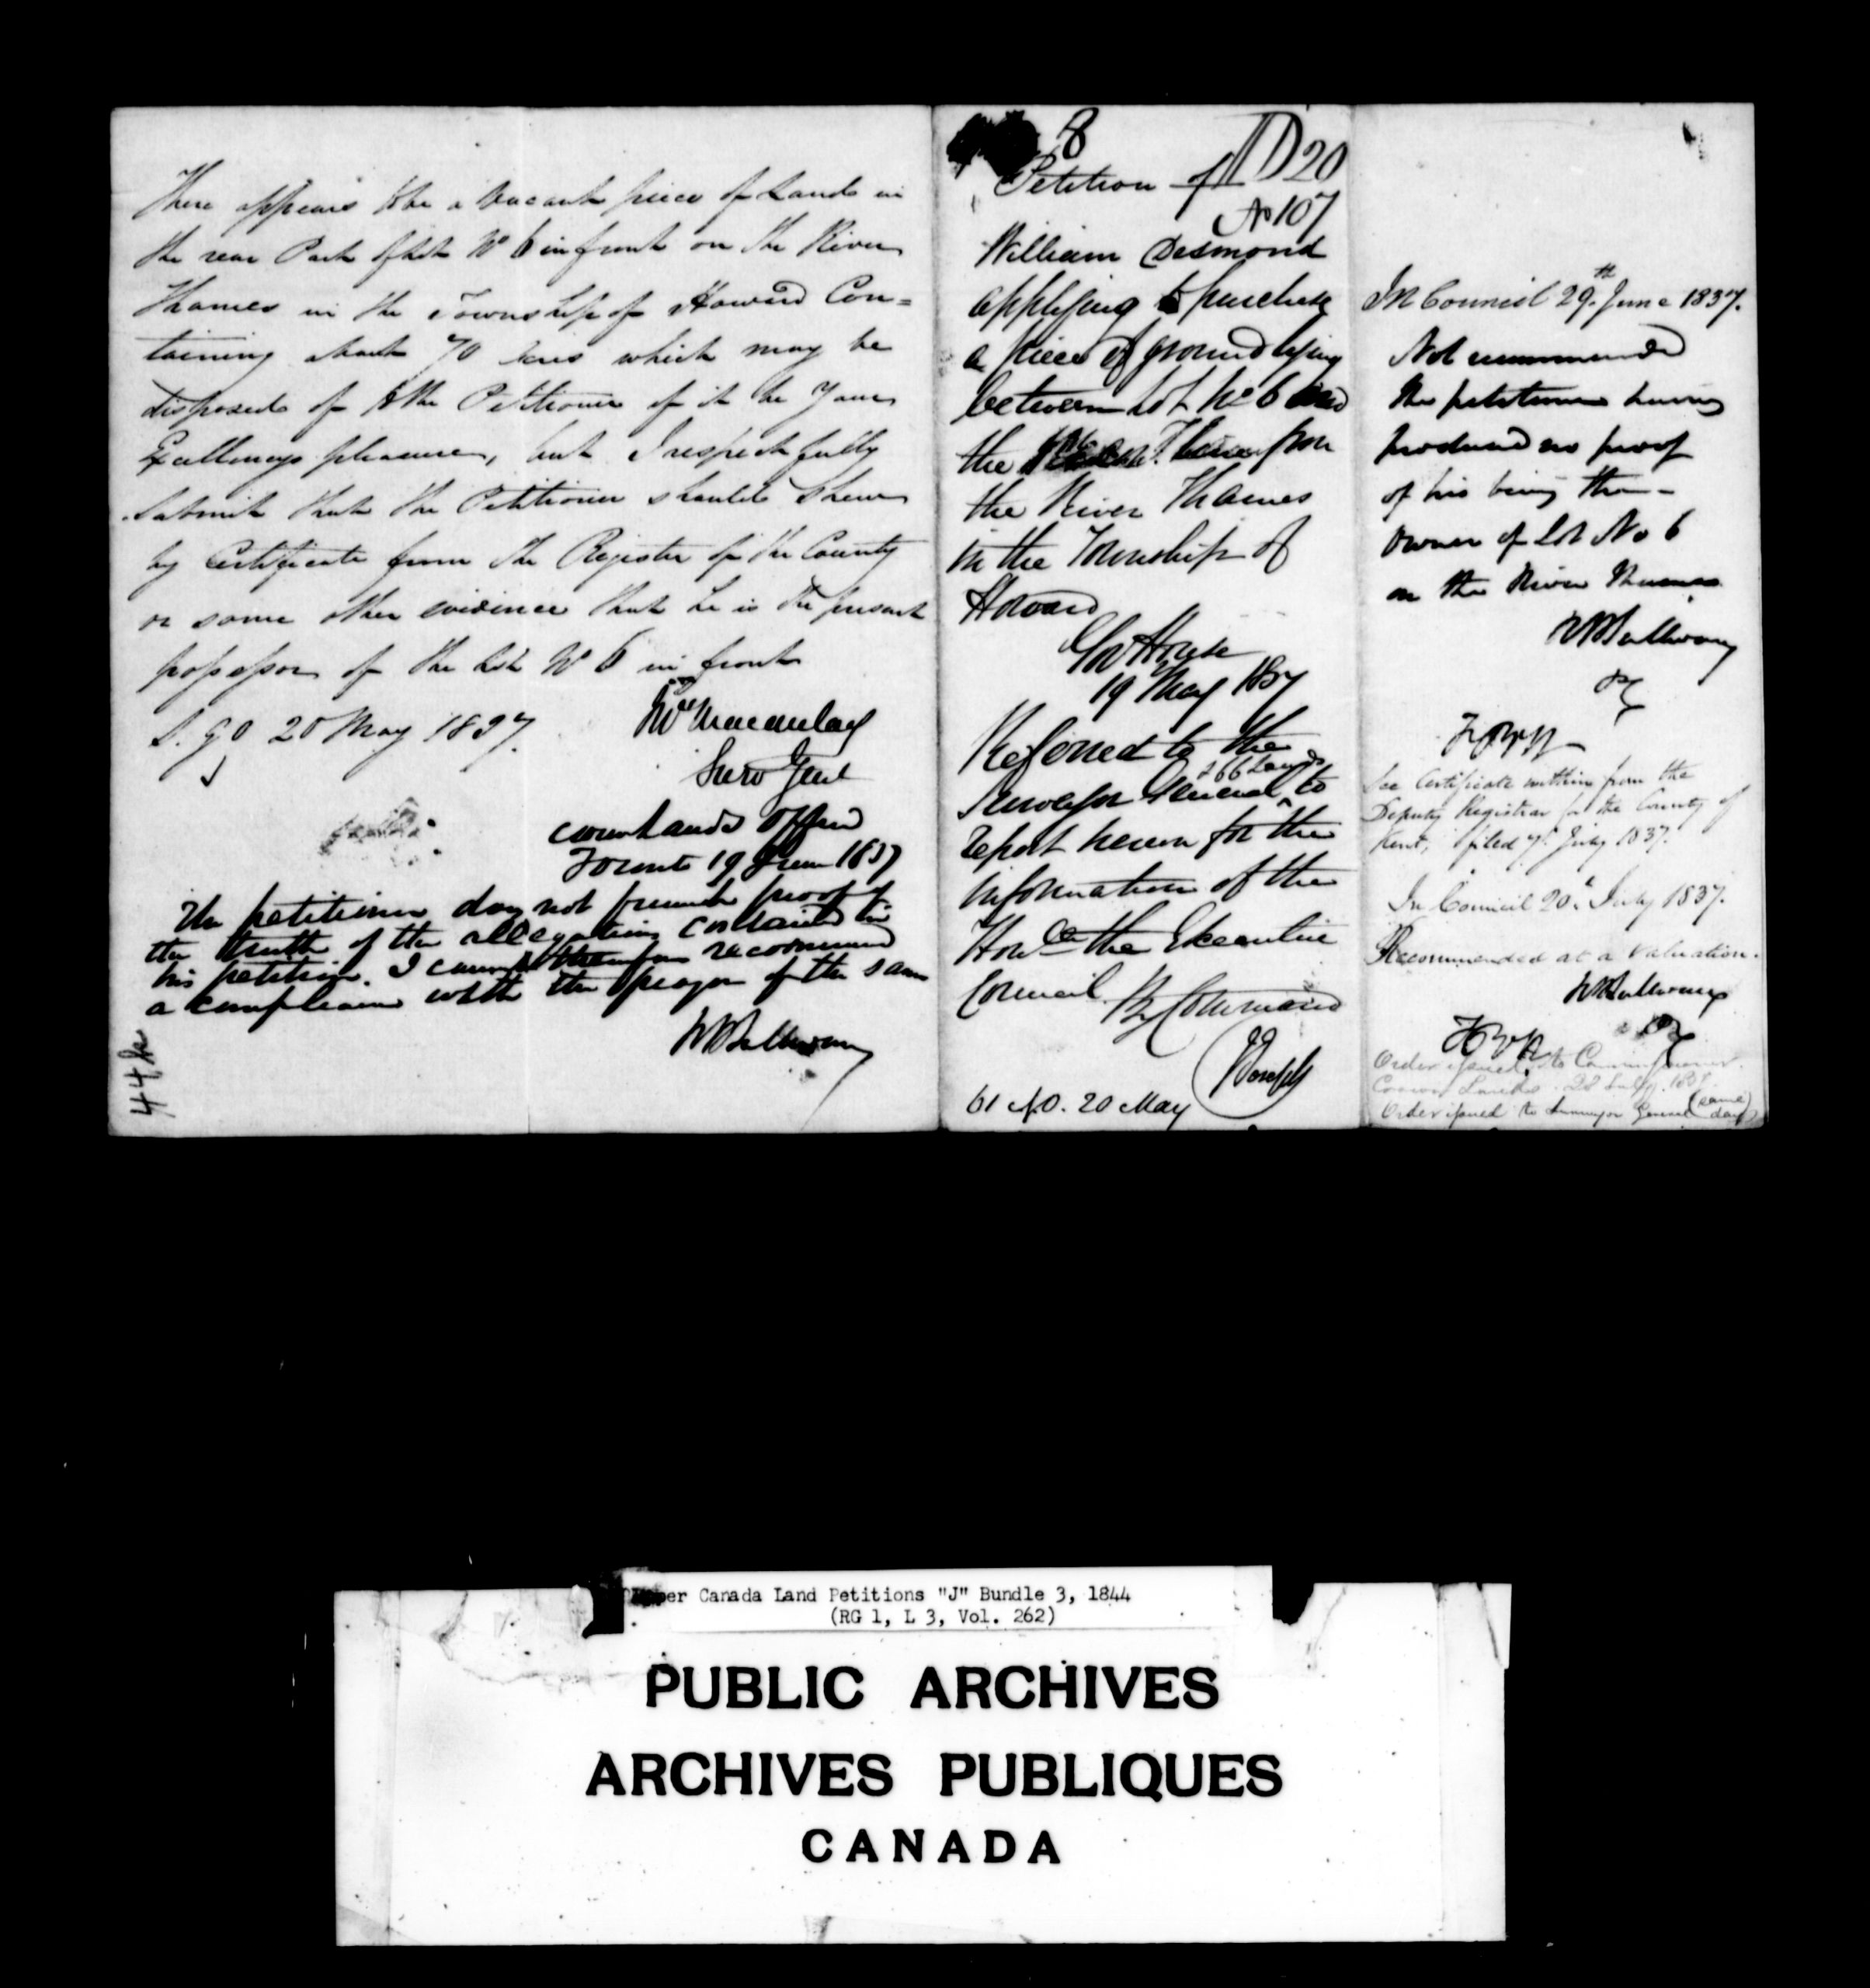 There appears to be a vacant piece of Land in
the rear Part of Lot No 6 in front on the River
Thames in the Township of Howard Con=
taining about 70 acres which may be
disposed of to the Petitioner if it be Your
Excellency's pleasure, but I respectfully
submit that the Petitioner should shew
by Certificate from the Register of the County
or some other evidence that he is the present
possessor of the Lot No 6 in front
S. G. O 20 May 1837.
Macaulay
Surv Genl
Crown Lands Office
Toronto 19 June 1837
The petitioner does not furnish proof of
the truth of the allegations contained in
his petition. I cannot therefore recommend
a compliance with the prayer of the same
RB Sullivan
8
D 20
Petition of
No 107
William Desmond
applying to purchase
a piece of ground lying
between Lot No 6 and
the
the River Thames
in the Township of
Howard
Gov House
19 May 1837
Referred to the
Surveyor General to
report hereon for the
information of the
Honble the Executive
Council.
By Command
J Joseph
61 20 May
In Council 29th June 1837.
Not recommended
the petitioner having
produced no proof
of his being the
owner of Lot No 6
on the River Thames
RB Sullivan
PC
See Certificate within from the
Deputy Registrar for the County of
Kent, filed 7th July 1837.
In Council 20th July 1837.
Recommended at a valuation.
RB Sullivan
PC
Order issued to Commissioner
Crown Lands 28 July 1837
Order issued to Surveyor General (same day)
Upper Canada Land Petitions "J" Bundle 3, 1844
(RG 1, L 3, Vol. 262)
PUBLIC ARCHIVES
ARCHIVES PUBLIQUES
CANADA